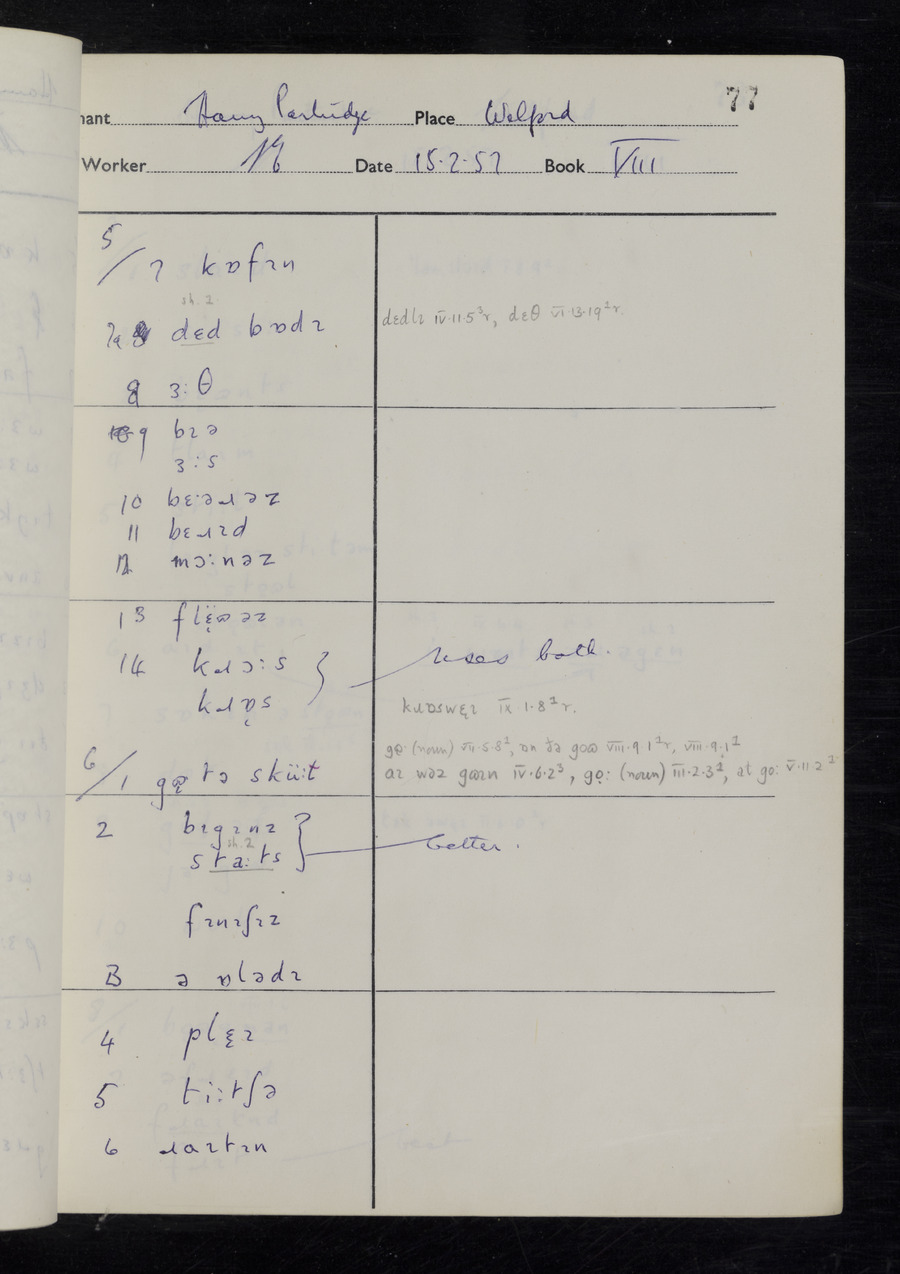 77
nant Harry Partridge Place Welford
Worker Date 15·2·57 Book VIII
5/7 kɒfɪn
sh. 2
7a dɛd bɒdɪ dɛdlɪ IV·11·5³r, dɛθ VI·13·19²r.
8 ɜ:θ
9 bɪə
ɜ:s
10 bɛ:əɹəz
11 bɛɹɪd
12 mɔ:nəz
13 flë̞ɷəz
14 kɹɔ:s uses both.
kɹɒ̞s kɹɒswɛ̞ɪ IX·1·8¹r.
gọ: (noun) VII·5·8¹, ɒn ðə goɷ VIII·9·1¹r, VIII·9·1¹
6/1 gɷ tə skü:t aɪ wəz goɪn IV·6·2³, gọ: (noun) III·2·3¹, at go: V·11·2²
2 bɪgɪnz
sh. 2
sta:ts better.
fɪnɪʃɪz
3 ə ɒlədɪ
4 plɛ̞ɪ
5 ti:tʃə
6 ɹaɪtɪn